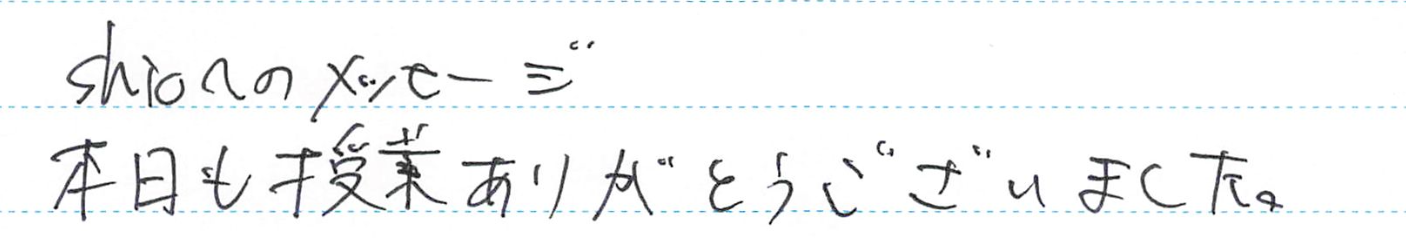 shioへのメッセージ
本日も授業ありがとうございました。